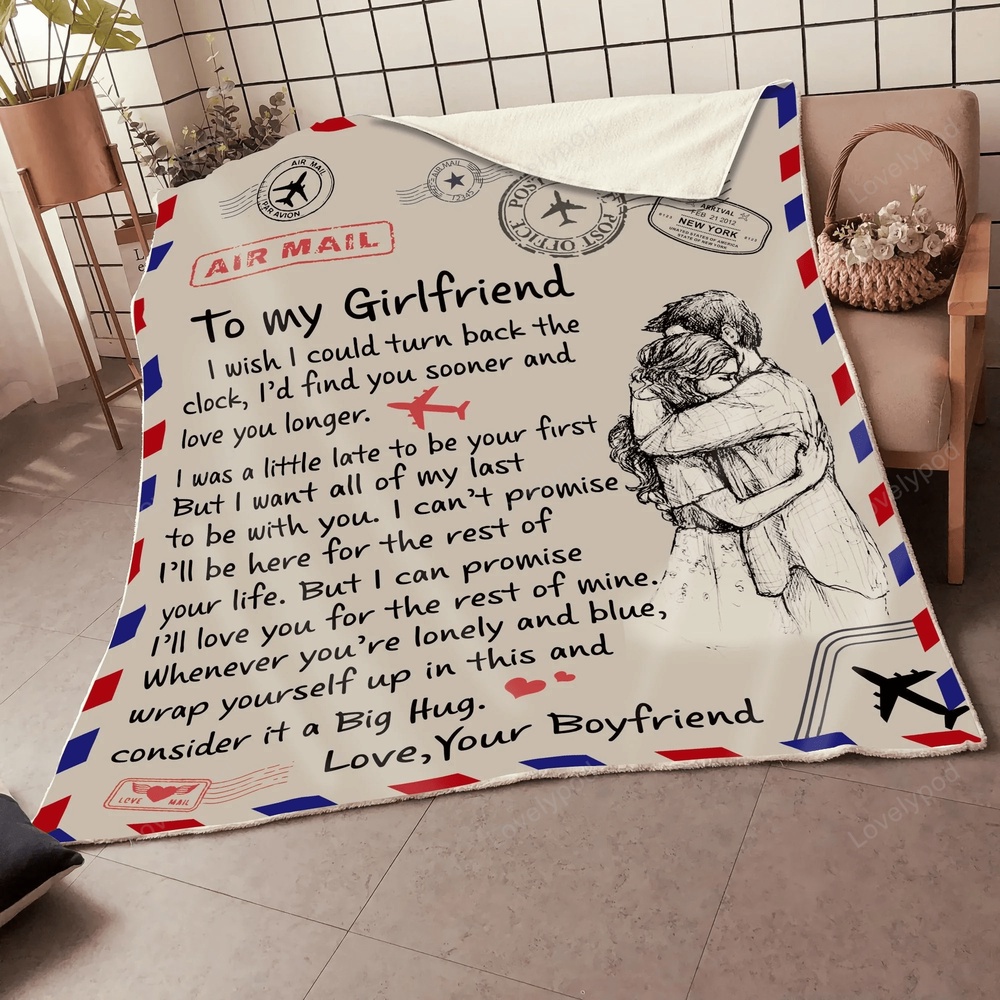 AIR MAIL
PAR AVION
AIR MAIL
12345
POST OFFICE
POST OFFICE
ARRIVAL
FEB 21 2012
#123 NEW YORK #123
UNITED STATES OF AMERICA
STATE OF NEW YORK
AIR MAIL
To my Girlfriend
I wish I could turn back the
clock, I'd find you sooner and
love you longer.
I was a little late to be your first
But I want all of my last
to be with you. I can't promise
I'll be here for the rest of
your life. But I can promise
I'll love you for the rest of mine.
Whenever you're lonely and blue,
wrap yourself up in this and
consider it a Big Hug.
Love,Your Boyfriend
LOVE MAIL
Lovelypod
Lovelypod
Lovelypod